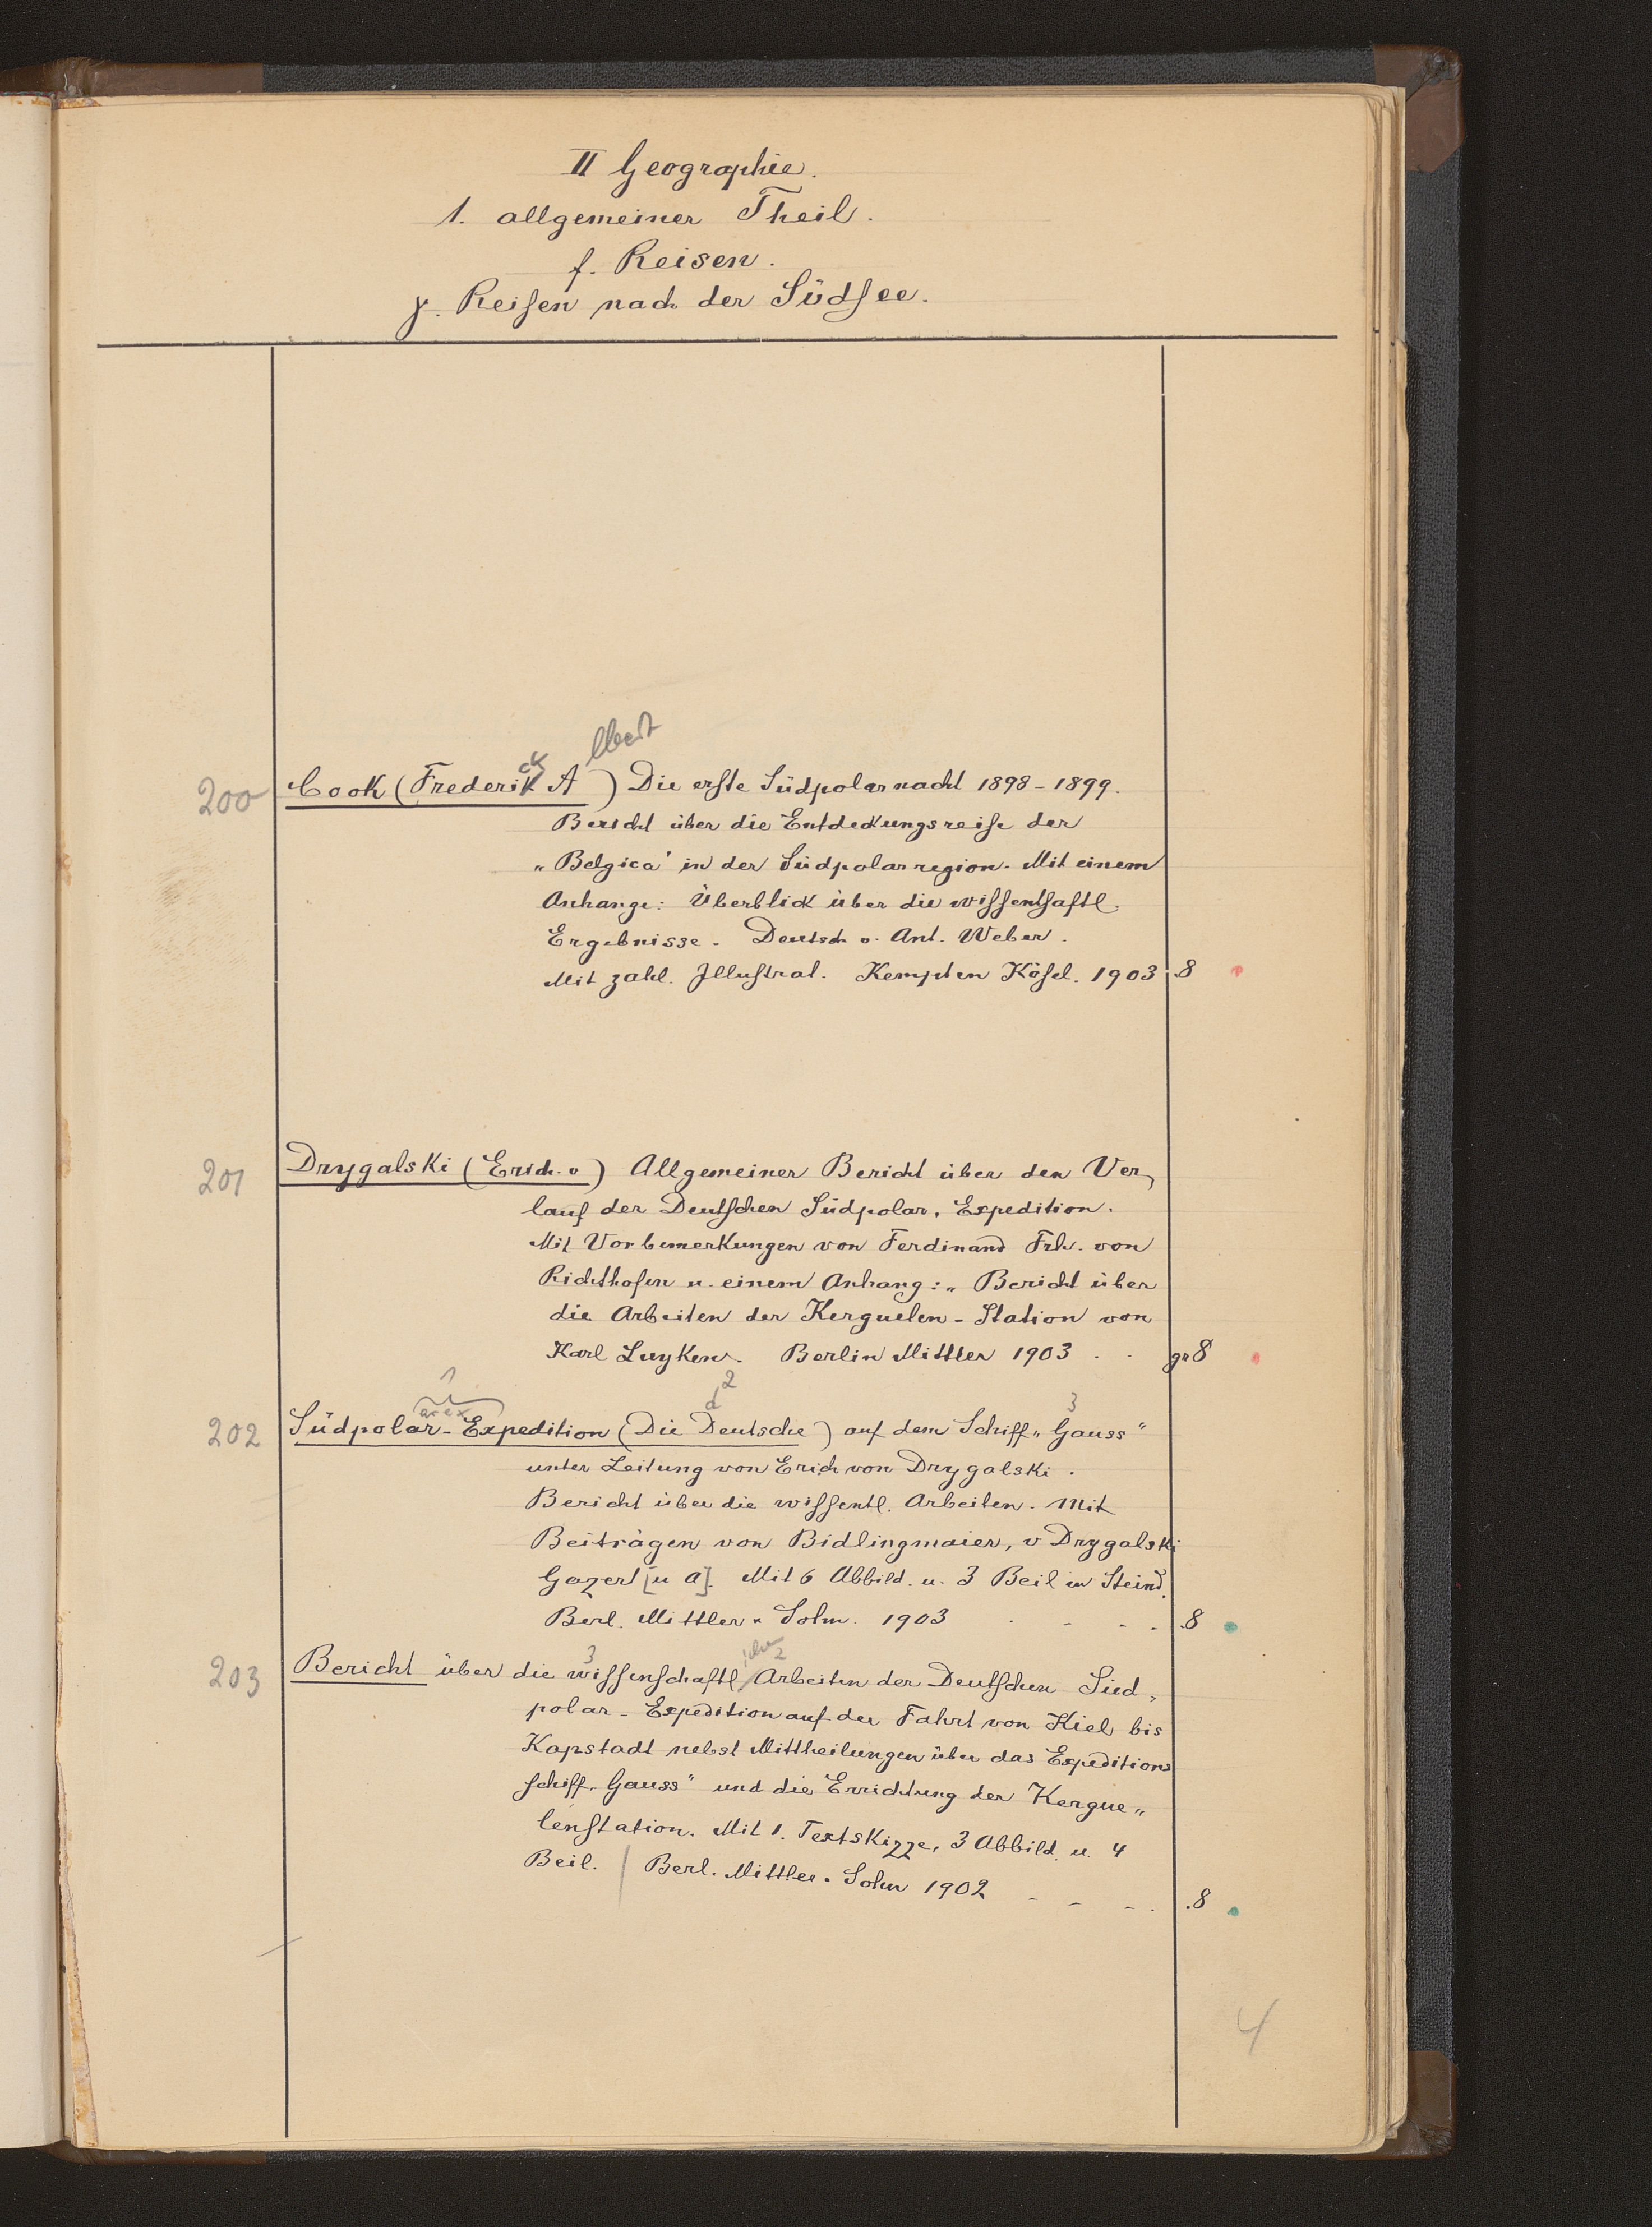 II Geographie.
1. allgemeiner Theil.
f. Reisen.
γ. Reisen nach der Südsee.
lbert
ck
200 Cook (Frederik A ) Die erste Südpolarnacht 1898-1899.
Bericht über die Entdeckungsreise der
„Belgica" in der Südpolarregion. Mit einem
Anhange: Überblick über die wissentsaftl.
Ergebnisse. Deutsch v. Ant. Weber.
Mit zahl. Illustrat. Kempten Kösel. 1903 8
201 Drygalski (Erich v) Allgemeiner Bericht über den Ver,
lauf der Deutschen Südpolar, Expedition.
Mit Vorbemerkungen von Ferdinand Frh. von
Richthofen u. einem Anhang: „Bericht über
die Arbeiten der Kerguelen-Station von
Karl Luyken. Berlin Mittler 1903 . . gr 8
1 2 3
ar ex d
202 Südpolar-Expedition (Die Deutsche) auf dem Schiff „Gauss"
unter Leitung von Erich von Drygalski.
Bericht über die wissentl. Arbeiten. Mit
Beiträgen von Bidlingmaier, v Drygalski
Gazert [u a]. Mit 6 Abbild. u. 3 Beil in Steind.
Berl. Mittler & Sohn. 1903 . - - - .8
3 2
203 Bericht über die wissenschaftl Arbeiten der Deutschen Süd,
polar-Expedition auf der Fahrt von Kiel bis
Kapstadt nebst Mittheilungen über das Expeditions
schiff „Gauss" und die Errichtung der Kergue„
lenstation. Mit 1. Textskizze, 3 Abbild. u. 4
Beil. / Berl. Mittler & Sohn 1902 - - - . .8
4